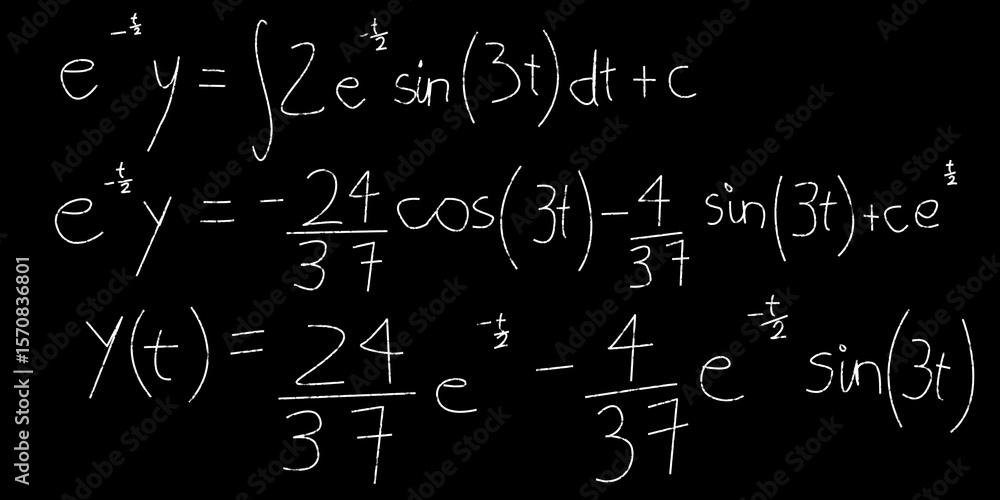 e^{-t/2} y = ∫ 2e^{-t/2} sin(3t) dt + c
e^{-t/2} y = -24/37 cos(3t) - 4/37 sin(3t) + ce^{t/2}
y(t) = 24/37 e^{-t/2} - 4/37 e^{-t/2} sin(3t)
Adobe Stock | #1570836801